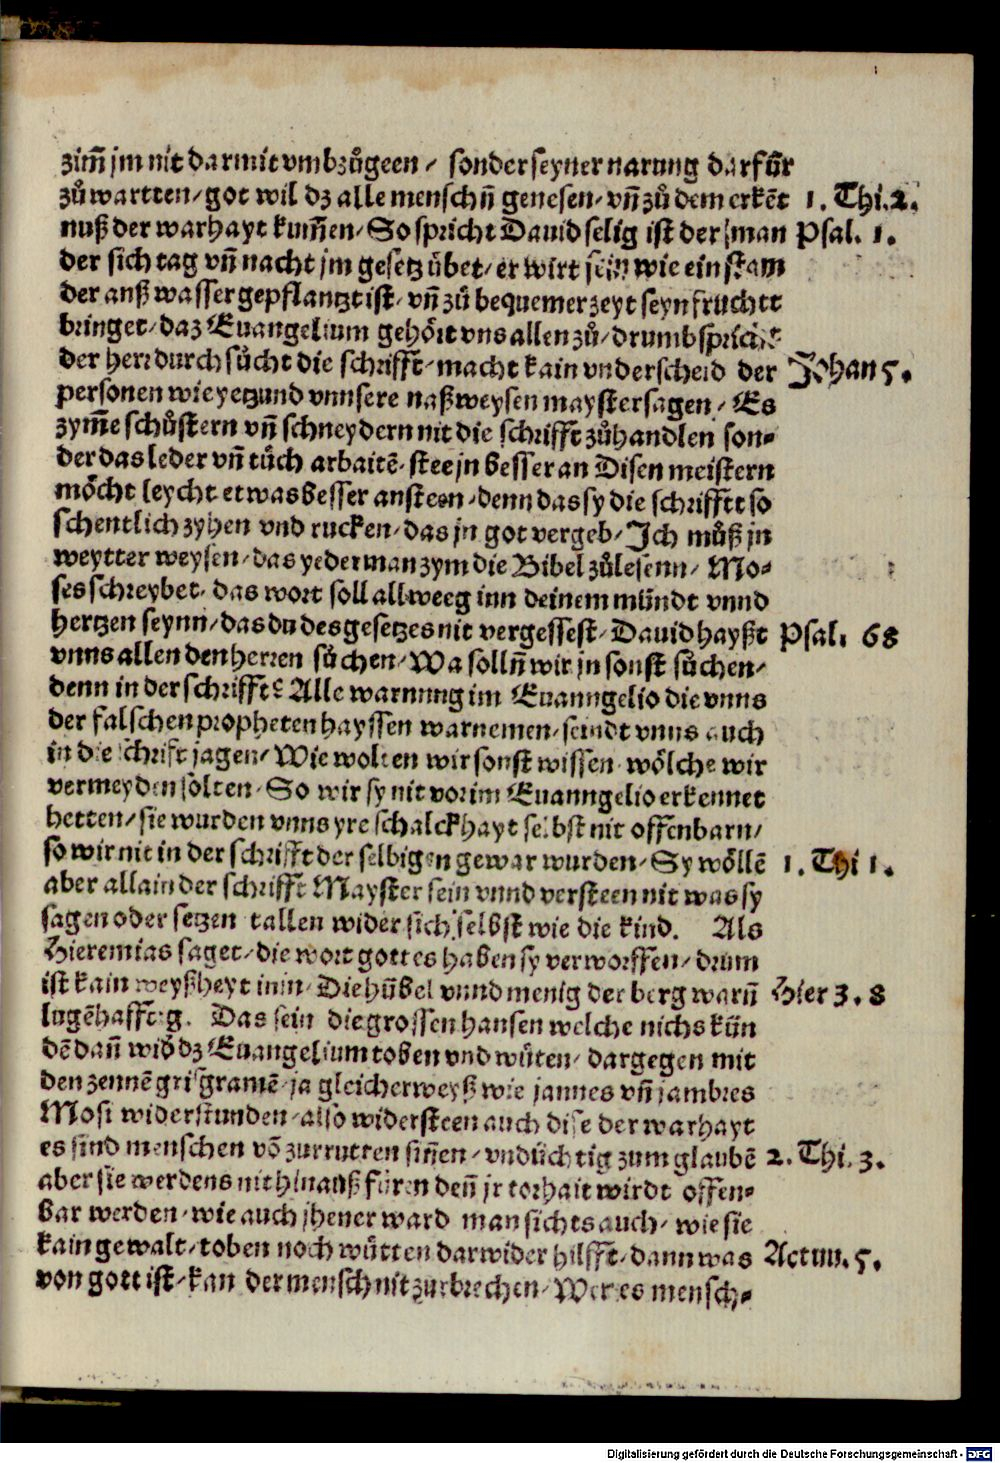 zim̃ jm nit darmit vmbzůgeen / sonder seyner narung darfür
zů wartten / got wil dz alle menschñ genesen / vñ zů dem erkẽt 1. Thi. 2.
nuß der warhayt kum̃en / So spricht Dauid selig ist der man Psal. 1.
der sich tag vñ nacht jm gesetz übet / er wirt sein wie ein stam
der anß wasser gepflantzt ist / vñ zů bequemer zeyt seyn fruchtt
bringet / daz Euangelium gehört vns allen zů / drumb spricht
der herr durch sůcht die schrifft / macht kain vnderscheid der Johan 5.
personen wie yetzund vnnsere naßweysen mayster sagen / Es
zym̃e schůstern vñ schneydern nit die schrifft zůhandlen son⸗
der das leder vñ tůch arbaitẽ / stee jn besser an Disen meistern
möcht leycht etwas besser ansteen / denn das sy die schrifftt so
schentlich zyhen vnd rucken / das jn got vergeb / Ich můß jn
weytter weysen / das yederman zym die Bibel zůlesenn / Mo⸗
ses schreybet / das wort soll allweeg inn deinem mündt vnnd
hertzen seynn / das du des gesetzes nit vergessest / Dauid hayßt Psal. 68
vnns allen den herren sůchen / Wa sollñ wir jn sonst sůchen /
denn in der schrifft? Alle warnung im Euanngelio die vnns
der falschen propheten hayssen warnemen / seindt vnns auch
in die schrift jagen / Wie wolten wir sonst wissen wölche wir
vermeyden solten / So wir sy nit vor im Euanngelio erkennet
hetten / sie wurden vnns yre schalckhayt selbst nit offenbarn /
so wir nit in der schrifft der selbigen gewar wurden / Sy wöllẽ 1. Thi 1.
aber allain der schrifft Mayster sein vnnd versteen nit was sy
sagen oder setzen tallen wider sich selbst wie die kind. Als
Hieremias saget / die wort gottes haben sy verworffen / drum
ist kain weyßheyt inin / Die hübel vnnd menig der berg warñ Hier 3. 8
lugẽhafftig. Das sein die grossen hansen welche nichs kün
dẽ dañ widͤ dz Euangelium toben vnd wůten / dargegen mit
den zennẽ grisgramẽ / ja gleicherweyß wie jannes vñ jambres
Mosi widerstunden / also widersteen auch dise der warhayt
es sind menschen võ zurrutten sin̄en / vndüchtig zum glaubẽ 2. Thi. 3.
aber sie werdens nit hinauß füren deñ jr torhait wirdt offen⸗
bar werden / wie auch jhener ward man sichts auch / wie sie
kain gewalt / toben noch wůtten darwider hilfft / dann was Actuu. 5.
von gott ist / kan der mensch nit zurbrechen / Wer es mensch⸗
Digitalisierung gefördert durch die Deutsche Forschungsgemeinschaft - DFG